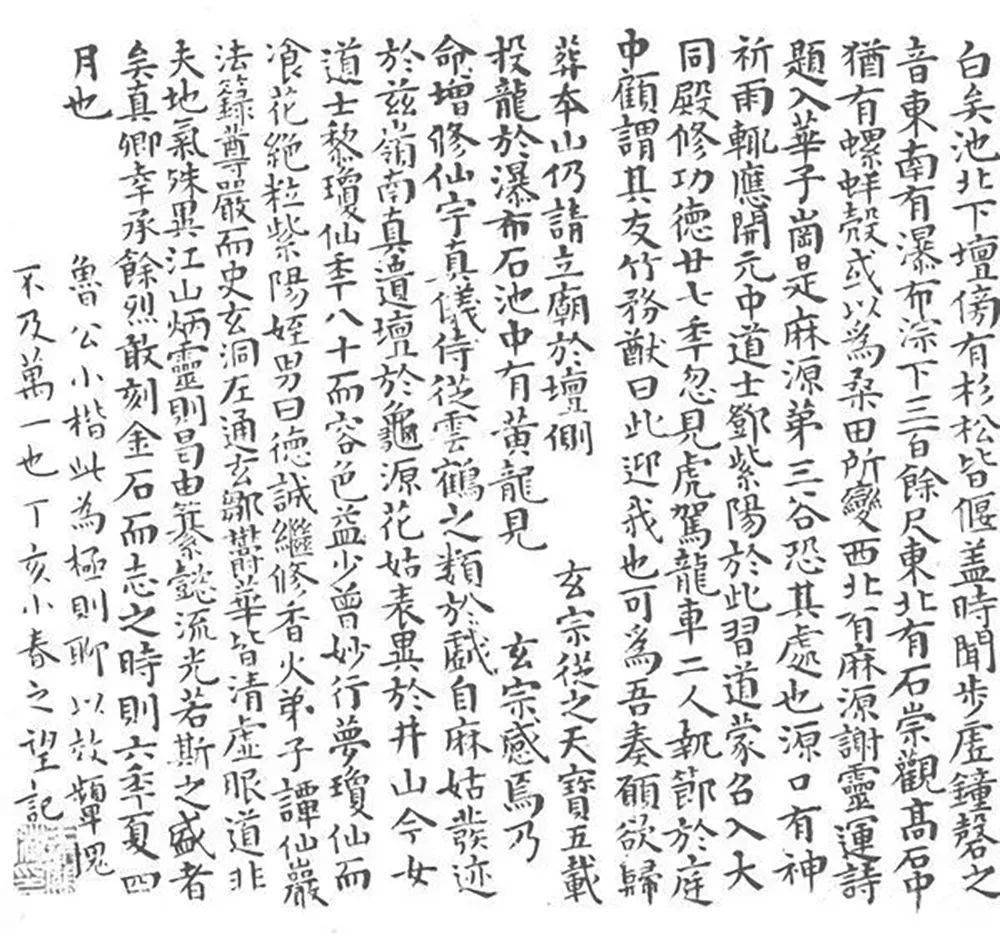 白矣池北下壇傍有杉松皆偃盖時聞步虛鐘磬之
音東南有瀑布淙下三百餘尺東北有石崇觀高石中
猶有螺蚌殼或以爲桑田所變西北有麻源謝靈運詩
題入華子崗是麻源第三谷恐其處也源口有神
祈雨輒應開元中道士鄧紫陽於此習道蒙召入大
同殿修功德廿七年忽見虎駕龍車二人執節於庭
中顧謂其友竹務猷曰此迎我也可爲吾奏願欲歸
葬本山仍請立廟於壇側 玄宗從之天寶五載
投龍於瀑布石池中有黃龍見 玄宗感焉乃
命增修仙宇真儀侍從雲鶴之類於戲自麻姑發迹
於茲嶺南真遺壇於龜源花姑表異於井山今女
道士黎瓊仙年八十而容色益少曾妙行夢瓊仙而
飡花絕粒紫陽姪男曰德誠繼修香火弟子譚仙巖
法籙尊嚴而史玄洞左通玄鄒鬱華皆清虛服道非
夫地氣殊異江山炳靈則曷由纂懿流光若斯之盛者
矣真卿幸承餘烈敢刻金石而志之時則六年夏四
月也
魯公小楷此為極則聊以效顰愧
不及萬一也丁亥小春之望記